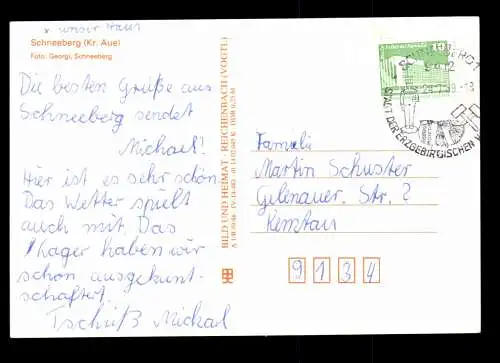 x unser Haus
Schneeberg (Kr. Aue)
Foto: Georgi, Schneeberg
Die besten Grüße aus
Schneeberg sendet
Michael!
Hier ist es sehr schön
Das Wetter spielt
auch mit. Das
Lager haben wir
schon ausgekunt-
schaftet.
Tschüß Michael
BILD UND HEIMAT · REICHENBACH (VOGTL)
10
STADT DER ERZGEBIRGISCHEN
Familie
Martin Schuster
Gelenauer. Str. ?
Kemtau
9 1 3 4